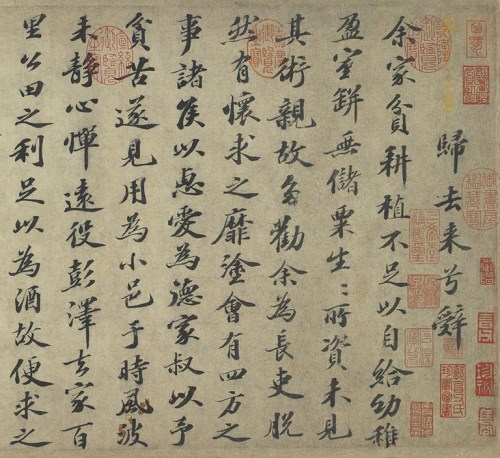 歸去来兮辭
余家貧耕植不足以自給幼稚
盈室缾無儲粟生〻所資未見
其術親故多勸余為長吏脫
然有懷求之靡塗會有四方之
事諸侯以惠愛為德家叔以予
貧苦遂見用為小邑于時風波
未靜心憚遠役彭澤去家百
里公田之利足以為酒故便求之